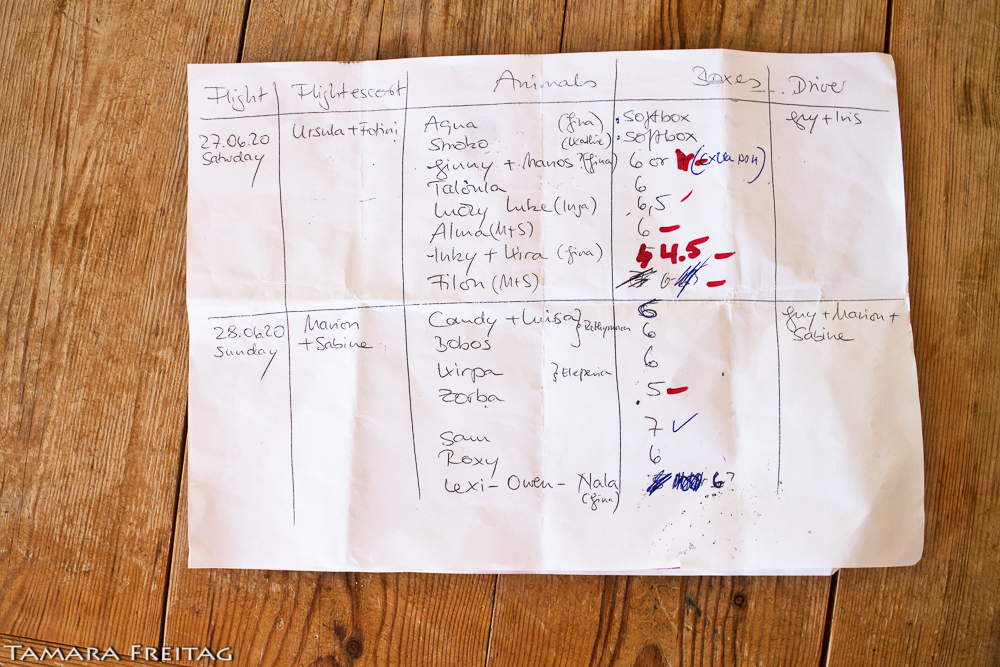 Flight Flightescort Animals Boxes Driver
27.06.20 Ursula + Fotini Aqua (Gina) softbox Guy + Iris
Saturday Smoko softbox
Ginny + Manos (Gina) 6 or
Talóula 6
Lucky Luke (Inja) 6,5
Alma (M+S) 6 –
Inky + Kira (Gina) 4.5 –
Filon (M+S) 6 –
28.06.20 Marion Candy + Luisa } Rethymnon 6 Guy + Marion +
Sunday + Sabine Bobos 6 Sabine
Kirpa } Eleperia 6
Zorba 5 –
Sam 7 ✓
Roxy 6
Lexi – Owen – Nala 6?
(Gina)
TAMARA FREITAG